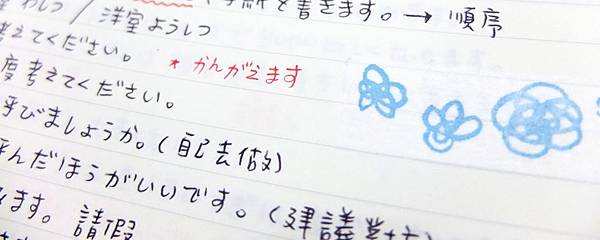 わしつ / 洋室ようしつ
を書きます。→ 順序
考えてください。 * かんがえます
度考えてください。
呼びましょうか。(自己去做)
呼んだほうがいいです。(建議
ます。 請假